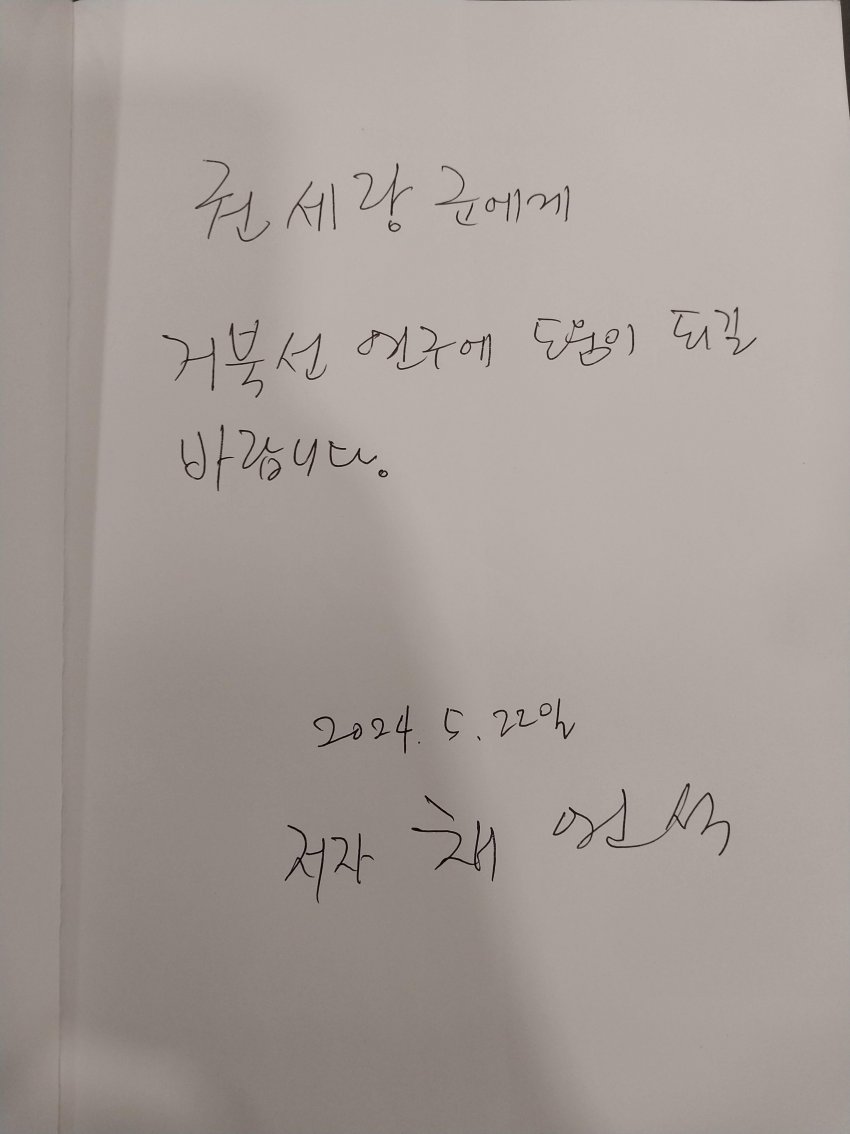 권세랑 군에게
거북선 연구에 도움이 되길
바랍니다.
2024. 5. 22일
저자 채연석